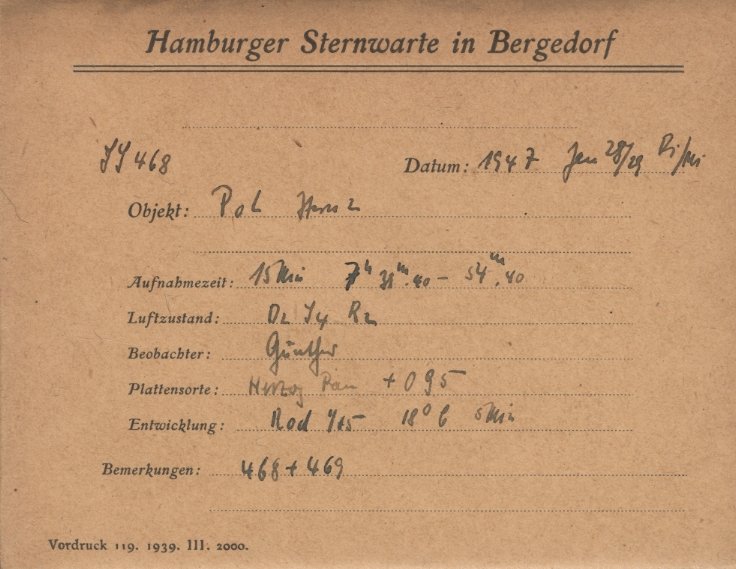 Hamburger Sternwarte in Bergedorf
468 Datum: 1947 Jan 28/29
Objekt: Pol
Aufnahmezeit: 15 Min 7h 39m.40 - 54m.40
Luftzustand: D2 R2
Beobachter: Günther
Plattensorte: Herzog Pan + 095
Entwicklung: Rod 1+5 18° C 5 Min
Bemerkungen: 468 + 469
Vordruck 119. 1939. III. 2000.